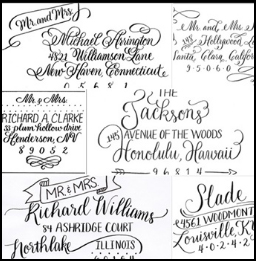 Mr. and Mrs.
Michael Arrington
4821 Williamson Lane
New Haven, Connecticut
Mr. and Mrs.
Hollywood
Santa Clara, Califor
95060
Mr. & Mrs.
RICHARD A. CLARKE
33 plum hollow drive
Henderson, NV
89052
THE
Jacksons
1145 AVENUE OF THE WOODS
Honolulu, Hawaii
96814
MR. & MRS.
Richard Williams
84 ASHRIDGE COURT
Northlake
ILLINOIS
Slade
4561 WOODMONT
Louisville, KY
40242